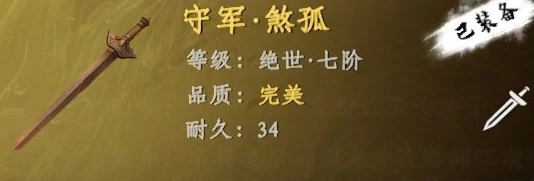 守军·煞孤
已装备
等级：绝世·七阶
品质：完美
耐久：34